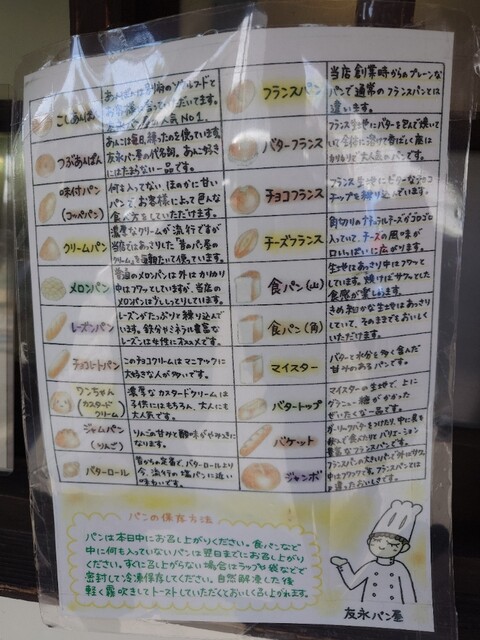 こしあんぱん
あんぱんは別府のソウルフードと
人気No.1。
つぶあんぱん
あんこは毎日、練ったのを使っています。
友永パン屋の代名詞。あんこ好き
にはたまらない一品です。
味付パン
(コッペパン)
何も入ってない、ほのかに甘い
パンで、お客様によって色んな
食べ方をしていただけます。
クリームパン
濃厚なクリームが流行ですが
当店ではあっさりした「昔のパン屋の
クリーム」を毎朝たいて使ってます。
メロンパン
普通のメロンパンは外はカリカリ
中はフワッとしていますが、当店の
メロンパンはしっとりしています。
レーズンパン
レーズンがたっぷりと練り込んで
います。鉄分やミネラル豊富な
レーズンは女性におススメです。
チョコレートパン
このチョコクリームはマニアックに
大好きな人が多いです。
ワンちゃん
(カスタード
クリーム)
濃厚なカスタードクリームは
子供にはもちろん、大人にも
大人気です。
ジャムパン
(りんご)
りんごの甘みと酸味がやみつきに
なります。
バターロール
昔からの定番で、バターロールより
今、流行の塩パンに近い
味わいです。
フランスパン
当店創業時からのプレーンな
パンで通常のフランスパンとは
違います。
バターフランス
フランス生地にバターを包んで焼いて
いて、全体に溶けて香ばしく底は
カリカリで大人気のパンです。
チョコフランス
フランス生地にビターなチョコ
チップを練り込んでいます。
チーズフランス
角切りのナチュラルチーズがゴロゴロ
入っていて、チーズの風味が
口いっぱいに広がります。
食パン(山)
生地はあっさり中はフワッと
しています。焼けばサクッとした
食感が楽しめます。
食パン(角)
きめ細かな生地はあっさり
していて、そのままでもおいしく
いただけます。
マイスター
バターと水分を多く含んだ
甘みのあるパンです。
バタートップ
マイスターの生地で、上に
グラニュー糖がかかった
ぜいたくな一品です。
バケット
ガーリックバターをつけたり、中に具を
挟んで食べたりとバリエーション
豊富なフランスパンです。
ジャンボ
フランスパンの大きいパンで外はサクッ
中はフワッです。フランスパンとは
違ったおいしさです。
パンの保存方法
パンは本日中にお召し上がりください。食パンなど
中に何も入っていないパンは翌日までにお召し上がり
ください。すぐに召し上がらない場合はラップや袋などで
密封して冷凍保存してください。自然解凍した後
軽く霧吹きしてトーストしていただくとおいしく召し上がれます。
友永パン屋